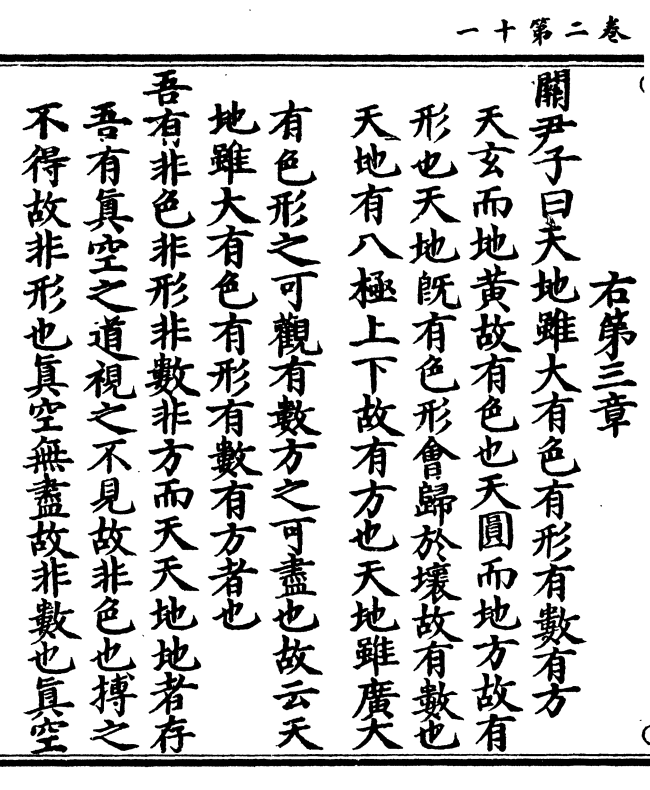 卷二第十一
右第三章
關尹子曰天地雖大有色有形有數有方
天玄而地黄故有色也天圓而地方故有
形也天地旣有色形會歸於壞故有數也
天地有八極上下故有方也天地雖廣大
有色形之可觀有數方之可盡也故云天
地雖大有色有形有數有方者也
吾有非色非形非數非方而天天地地者存
吾有眞空之道視之不見故非色也搏之
不得故非形也眞空無盡故非數也眞空